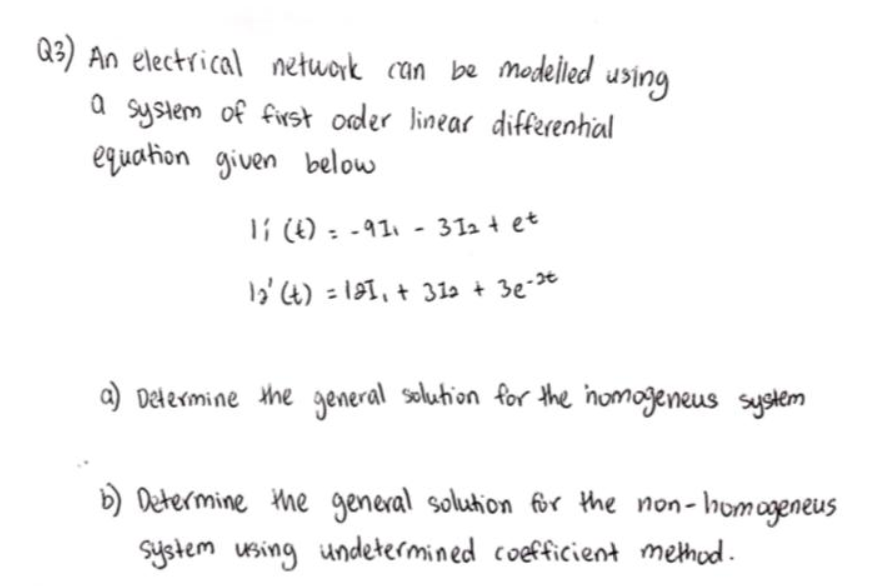 Q3) An electrical network can be modelled using
a system of first order linear differential
equation given below
I₁'(t) = -9I₁ - 3I₂ + e^t
I₂'(t) = 12I₁ + 3I₂ + 3e^-2t
a) Determine the general solution for the homogeneus system
b) Determine the general solution for the non-homogeneus
system using undetermined coefficient method.